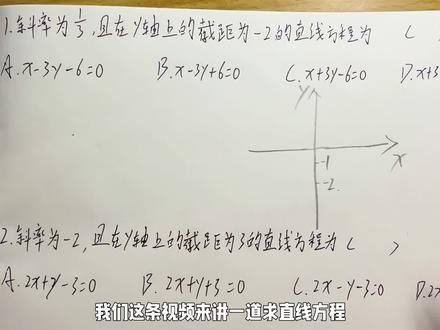 1.斜率为1/3,且在y轴上的截距为-2的直线方程为 (
A. x-3y-6=0 B. x-3y+6=0 C. x+3y-6=0 D. x+3
y
x
-1
-2
2.斜率为-2,且在y轴上的截距为3的直线方程为 ( )
A. 2x+y-3=0 B. 2x+y+3=0 C. 2x-y-3=0 D. 2x
我们这条视频来讲一道求直线方程